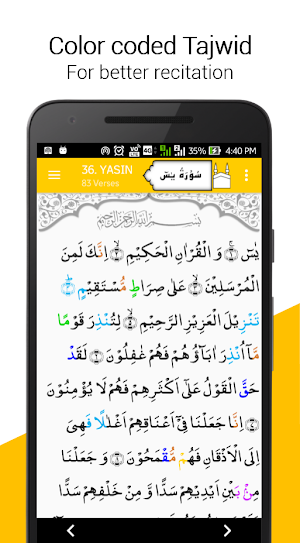 Color coded Tajwid
For better recitation
35% 4:40 PM
36. YASIN
83 Verses
سُوْرَةُ يٰسٓ
بِسْمِ اللّٰهِ الرَّحْمٰنِ الرَّحِيْمِ
يٰسٓ ۝١ وَ الْقُرْاٰنِ الْحَكِيْمِ ۝٢ اِنَّكَ لَمِنَ
الْمُرْسَلِيْنَ ۝٣ عَلٰى صِرَاطٍ مُّسْتَقِيْمٍ ۝٤
تَنْزِيْلَ الْعَزِيْزِ الرَّحِيْمِ ۝٥ لِتُنْذِرَ قَوْمًا
مَّاۤ اُنْذِرَ اٰبَآؤُهُمْ فَهُمْ غٰفِلُوْنَ ۝٦ لَقَدْ
حَقَّ الْقَوْلُ عَلٰۤى اَكْثَرِهِمْ فَهُمْ لَا يُؤْمِنُوْنَ
۝٧ اِنَّا جَعَلْنَا فِيْۤ اَعْنَاقِهِمْ اَغْلٰلًا فَهِيَ
اِلَى الْاَذْقَانِ فَهُمْ مُّقْمَحُوْنَ ۝٨ وَ جَعَلْنَا
مِنْۢ بَيْنِ اَيْدِيْهِمْ سَدًّا وَّ مِنْ خَلْفِهِمْ سَدًّا